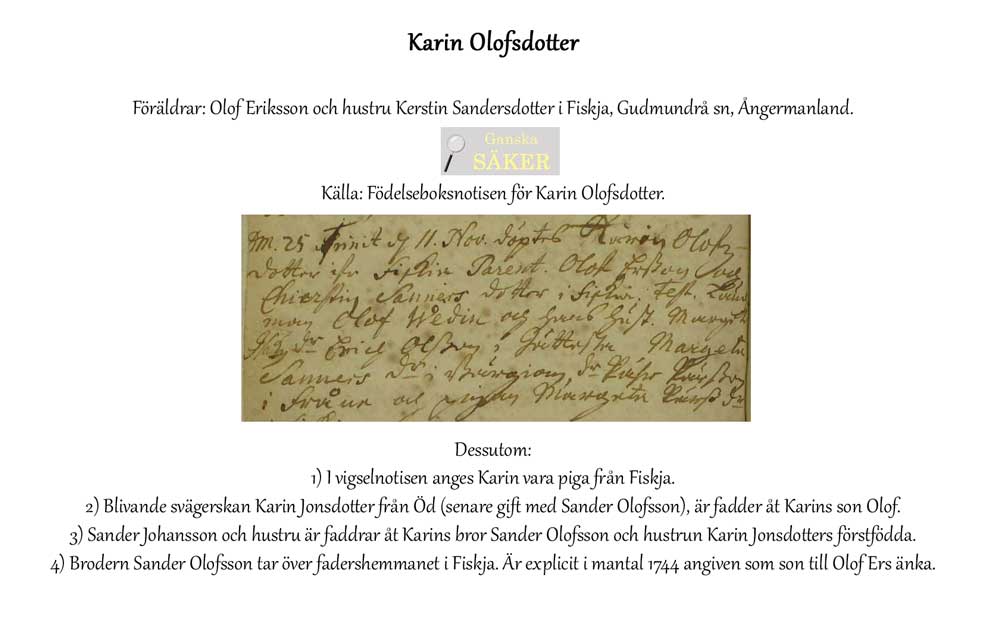 Karin Olofsdotter
Föräldrar: Olof Eriksson och hustru Kerstin Sandersdotter i Fiskja, Gudmundrå sn, Ångermanland.
Ganska
SÄKER
Källa: Födelseboksnotisen för Karin Olofsdotter.
25 Trinit 11. Nov. döptes Karin Olofz-
dotter ifr Fiskia Parent. Olof Erßon
Chierstin Sanners dotter i Fiskia. Test.
man Olof Wedin och hans hust. Marget
Erich Olßon i Margeta
Sanners dr i dr
i Fråne och pigan Margeta dr
Dessutom:
1) I vigselnotisen anges Karin vara piga från Fiskja.
2) Blivande svägerskan Karin Jonsdotter från Öd (senare gift med Sander Olofsson), är fadder åt Karins son Olof.
3) Sander Johansson och hustru är faddrar åt Karins bror Sander Olofsson och hustrun Karin Jonsdotters förstfödda.
4) Brodern Sander Olofsson tar över fadershemmanet i Fiskja. Är explicit i mantal 1744 angiven som son till Olof Ers änka.